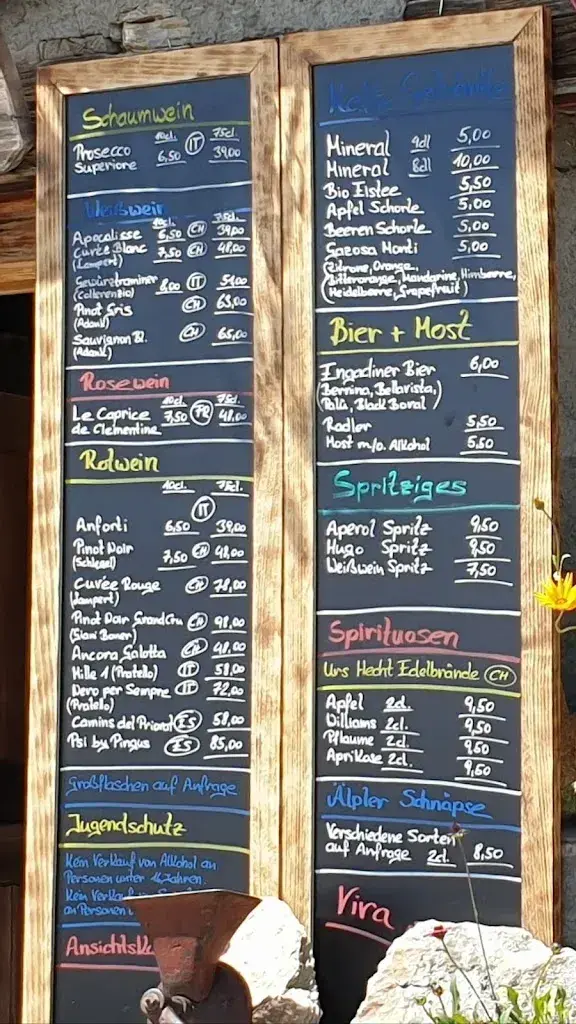 Schaumwein
10cl. 75cl.
Prosecco 6,50 IT 39,00
Superiore
Weißwein
10cl. 75cl.
Apocalisse 6,50 CH 39,00
Cuvée Blanc 7,50 CH 48,00
(Lampert)
Gewürztraminer 8,00 IT 54,00
(Collerenzio)
Pinot Gris CH 63,00
(Adank)
Sauvignon Bl. CH 65,00
(Adank)
Rosewein
10cl. 75cl.
Le Caprice 7,50 FR 48,00
de Clementine
Rotwein
10cl. 75cl.
IT
Anforti 6,50 39,00
Pinot Noir 7,50 CH 48,00
(Schlegel)
Cuvée Rouge CH 78,00
(Lampert)
Pinot Noir Grand Cru CH 98,00
(Siani Boner)
Ancora Galotta CH 48,00
Mille 1 (Pratello) IT 58,00
Dero per Sempre IT 72,00
(Pratello)
Camins del Priorat ES 58,00
Psi by Pingus ES 85,00
Großflaschen auf Anfrage
Jugendschutz
Kein Verkauf von Alkohol an
Personen unter 16 Jahren.
Kein Verkauf von
an Personen
Ansichtsk
Kalte Getränke
Mineral 4dl 5,00
Mineral 8dl 10,00
Bio Eistee 5,50
Apfel Schorle 5,00
Beeren Schorle 5,00
Gazosa Monti 5,00
(Zitrone, Orange,
Bitterorange, Mandarine, Himbeere,
Heidelbeere, Grapefruit)
Bier + Most
Engadiner Bier 6,00
(Bernina, Bellavista,
Palü, Black Boval)
Radler 5,50
Most m/o. Alkohol 5,50
Spritziges
Aperol Spritz 9,50
Hugo Spritz 9,50
Weißwein Spritz 7,50
Spirituosen
Urs Hecht Edelbrände CH
Apfel 2cl. 9,50
Williams 2cl. 9,50
Pflaume 2cl. 9,50
Aprikose 2cl. 9,50
Älpler Schnäpse
Verschiedene Sorten
auf Anfrage 2cl. 8,50
Vira